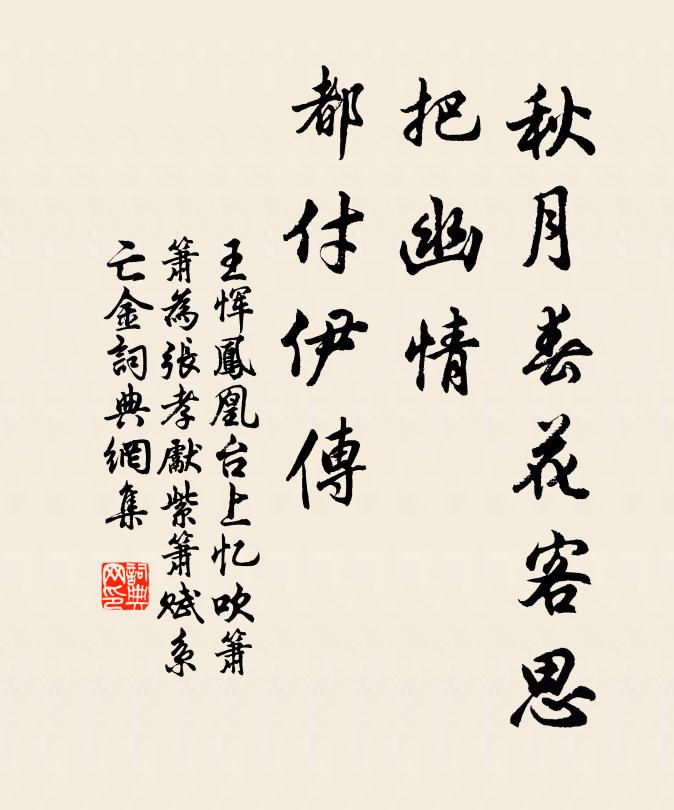 秋月春花客思
把幽情
都付伊傳
王恽鳳凰台上忆吹簫
簫為張孝獻紫簫賦系
亡金詞典網集
詞典
网印